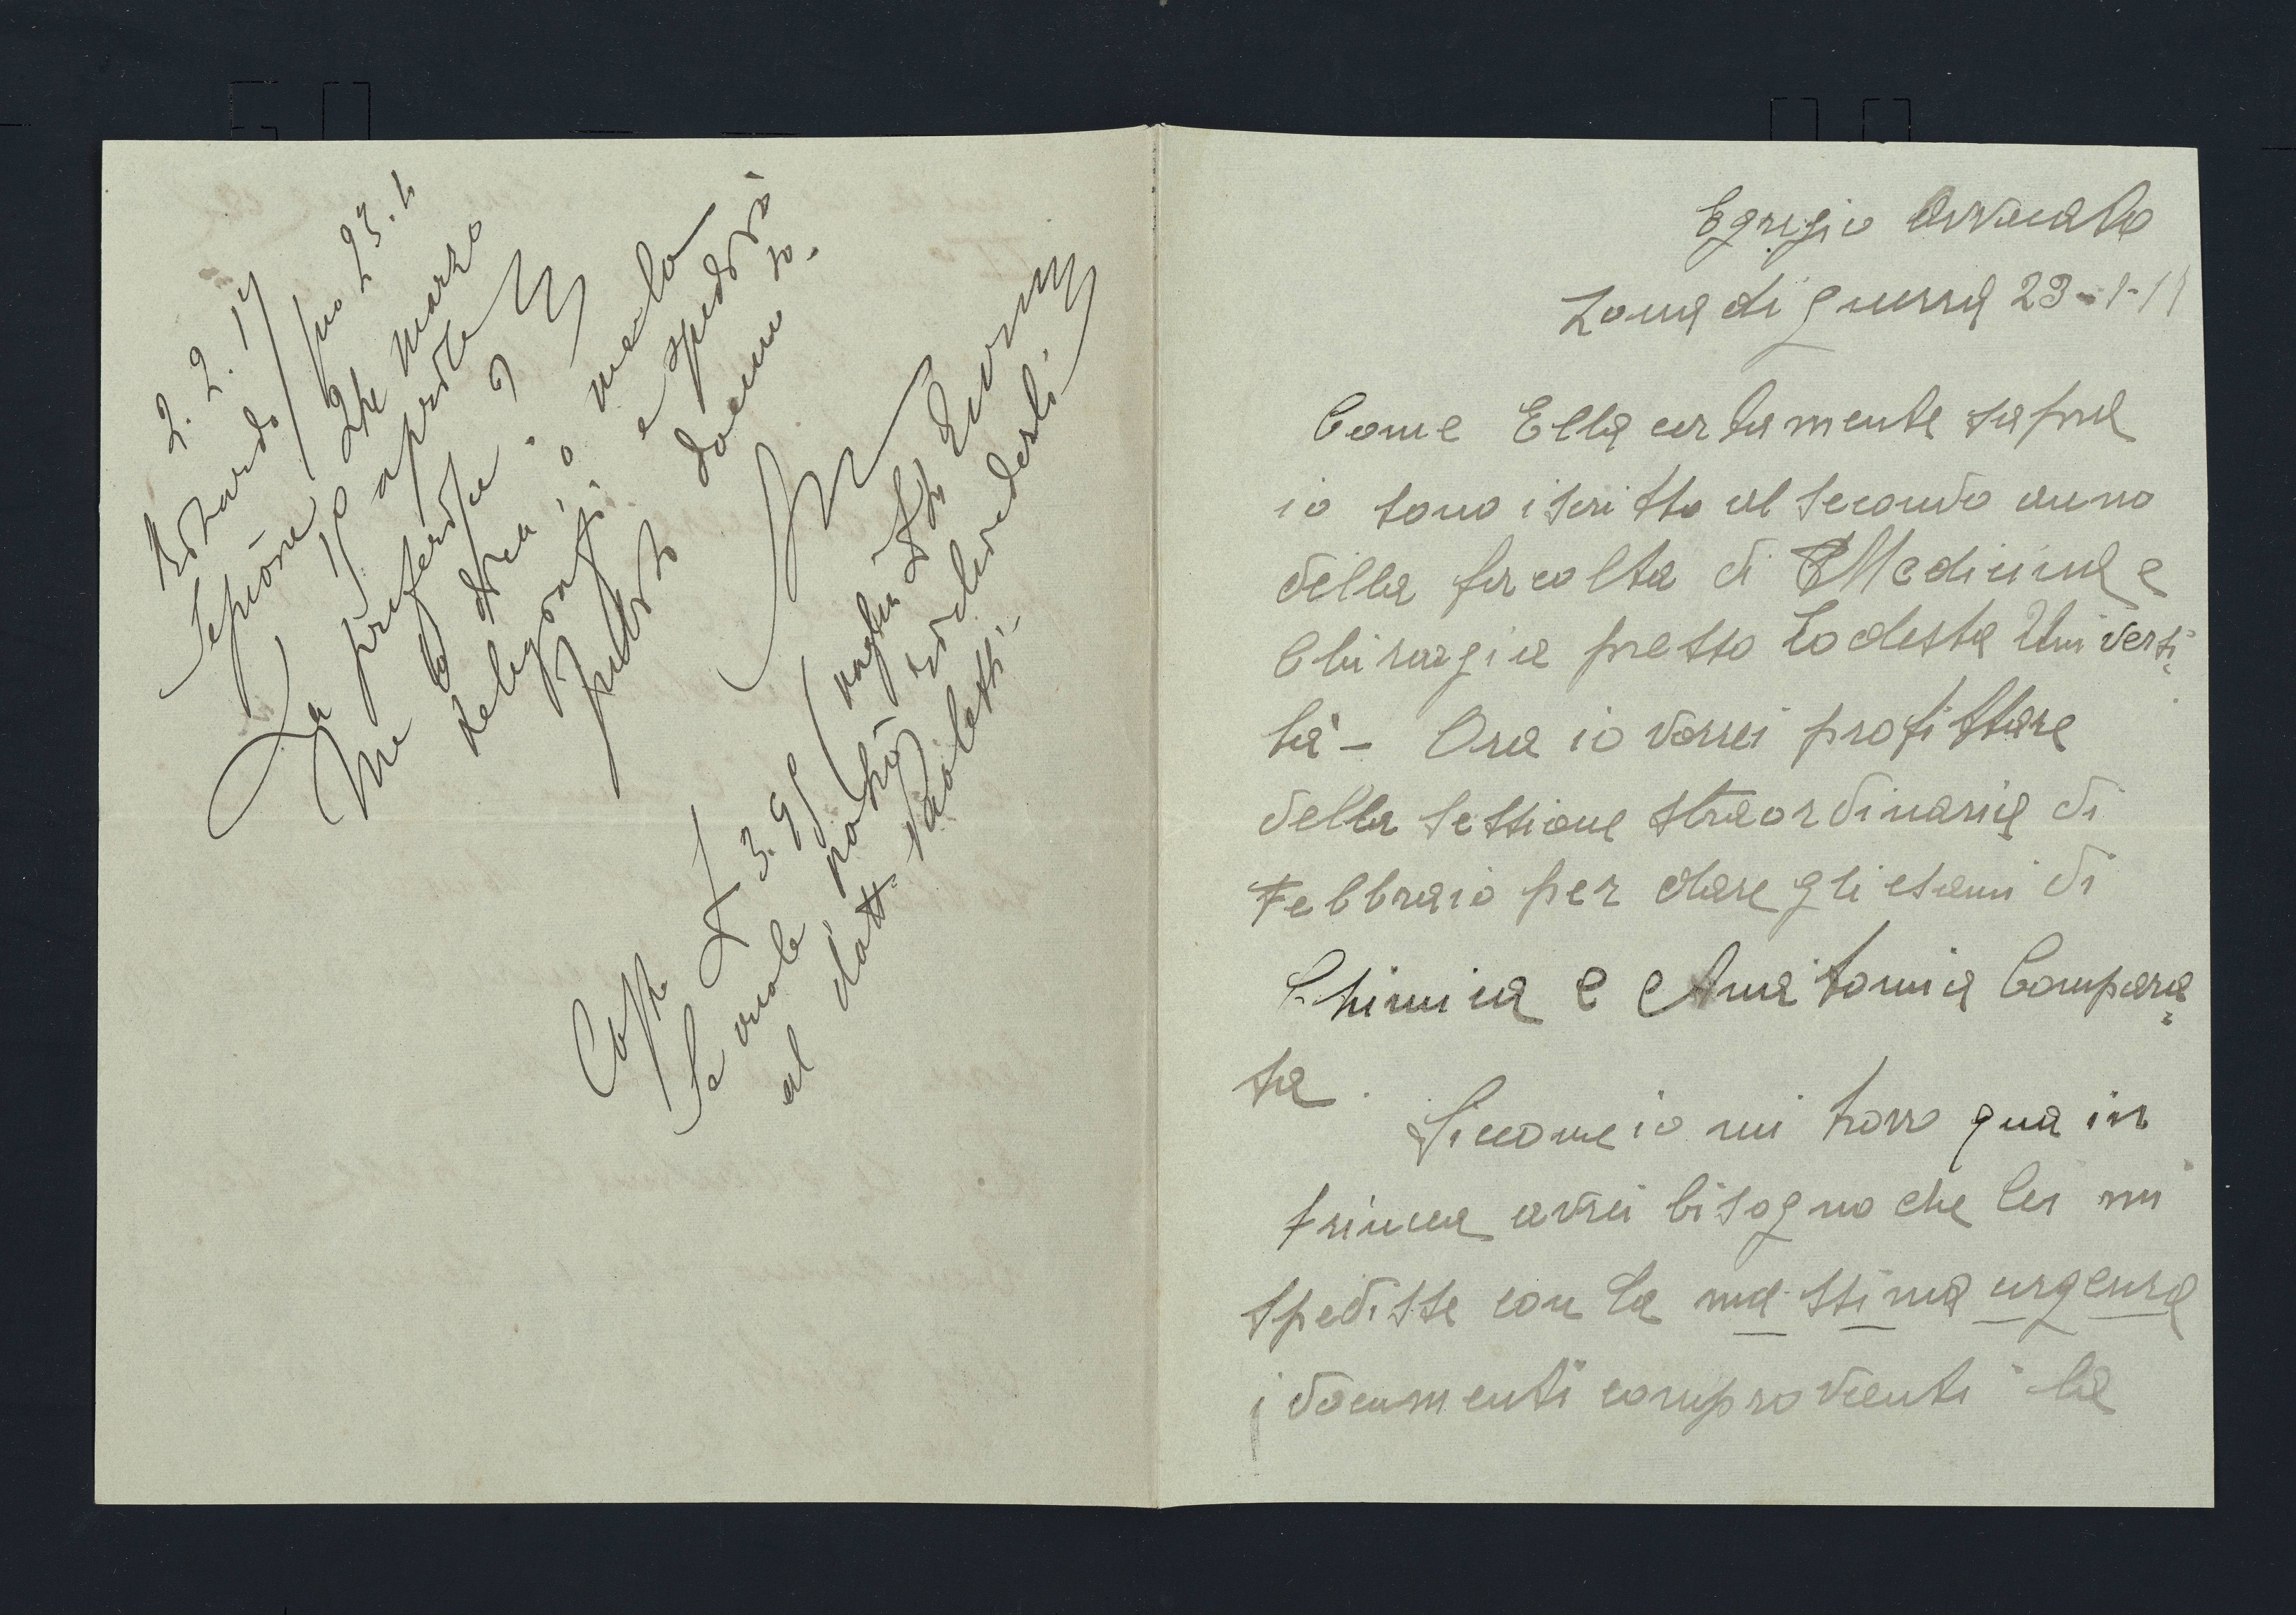 2. 2. 17
Riscontro suo 23. 1
Sessione 24 marzo
15 aprile
La preferisce?
Me lo dica o meglio
telegrafi e spedirò
subito docum to.
Costo £ 3.95
Se vuole
al dott. Paoletti
Egregio Avvocato
Zona di guerra 23-1-17
Come Ella certamente saprà
io sono iscritto al secondo anno
della facoltà di Medicina e
Chirurgia presso Codesta Universi=
tà - Ora io vorrei profittare
della sessione straordinaria di
Febbraio per dare gli esami di
Chimica e Anatomia Compara=
ta.
Siccome io mi trovo qua in
trincea avrei bisogno che lei mi
spedisse con la massima urgenza
i documenti comprovanti la